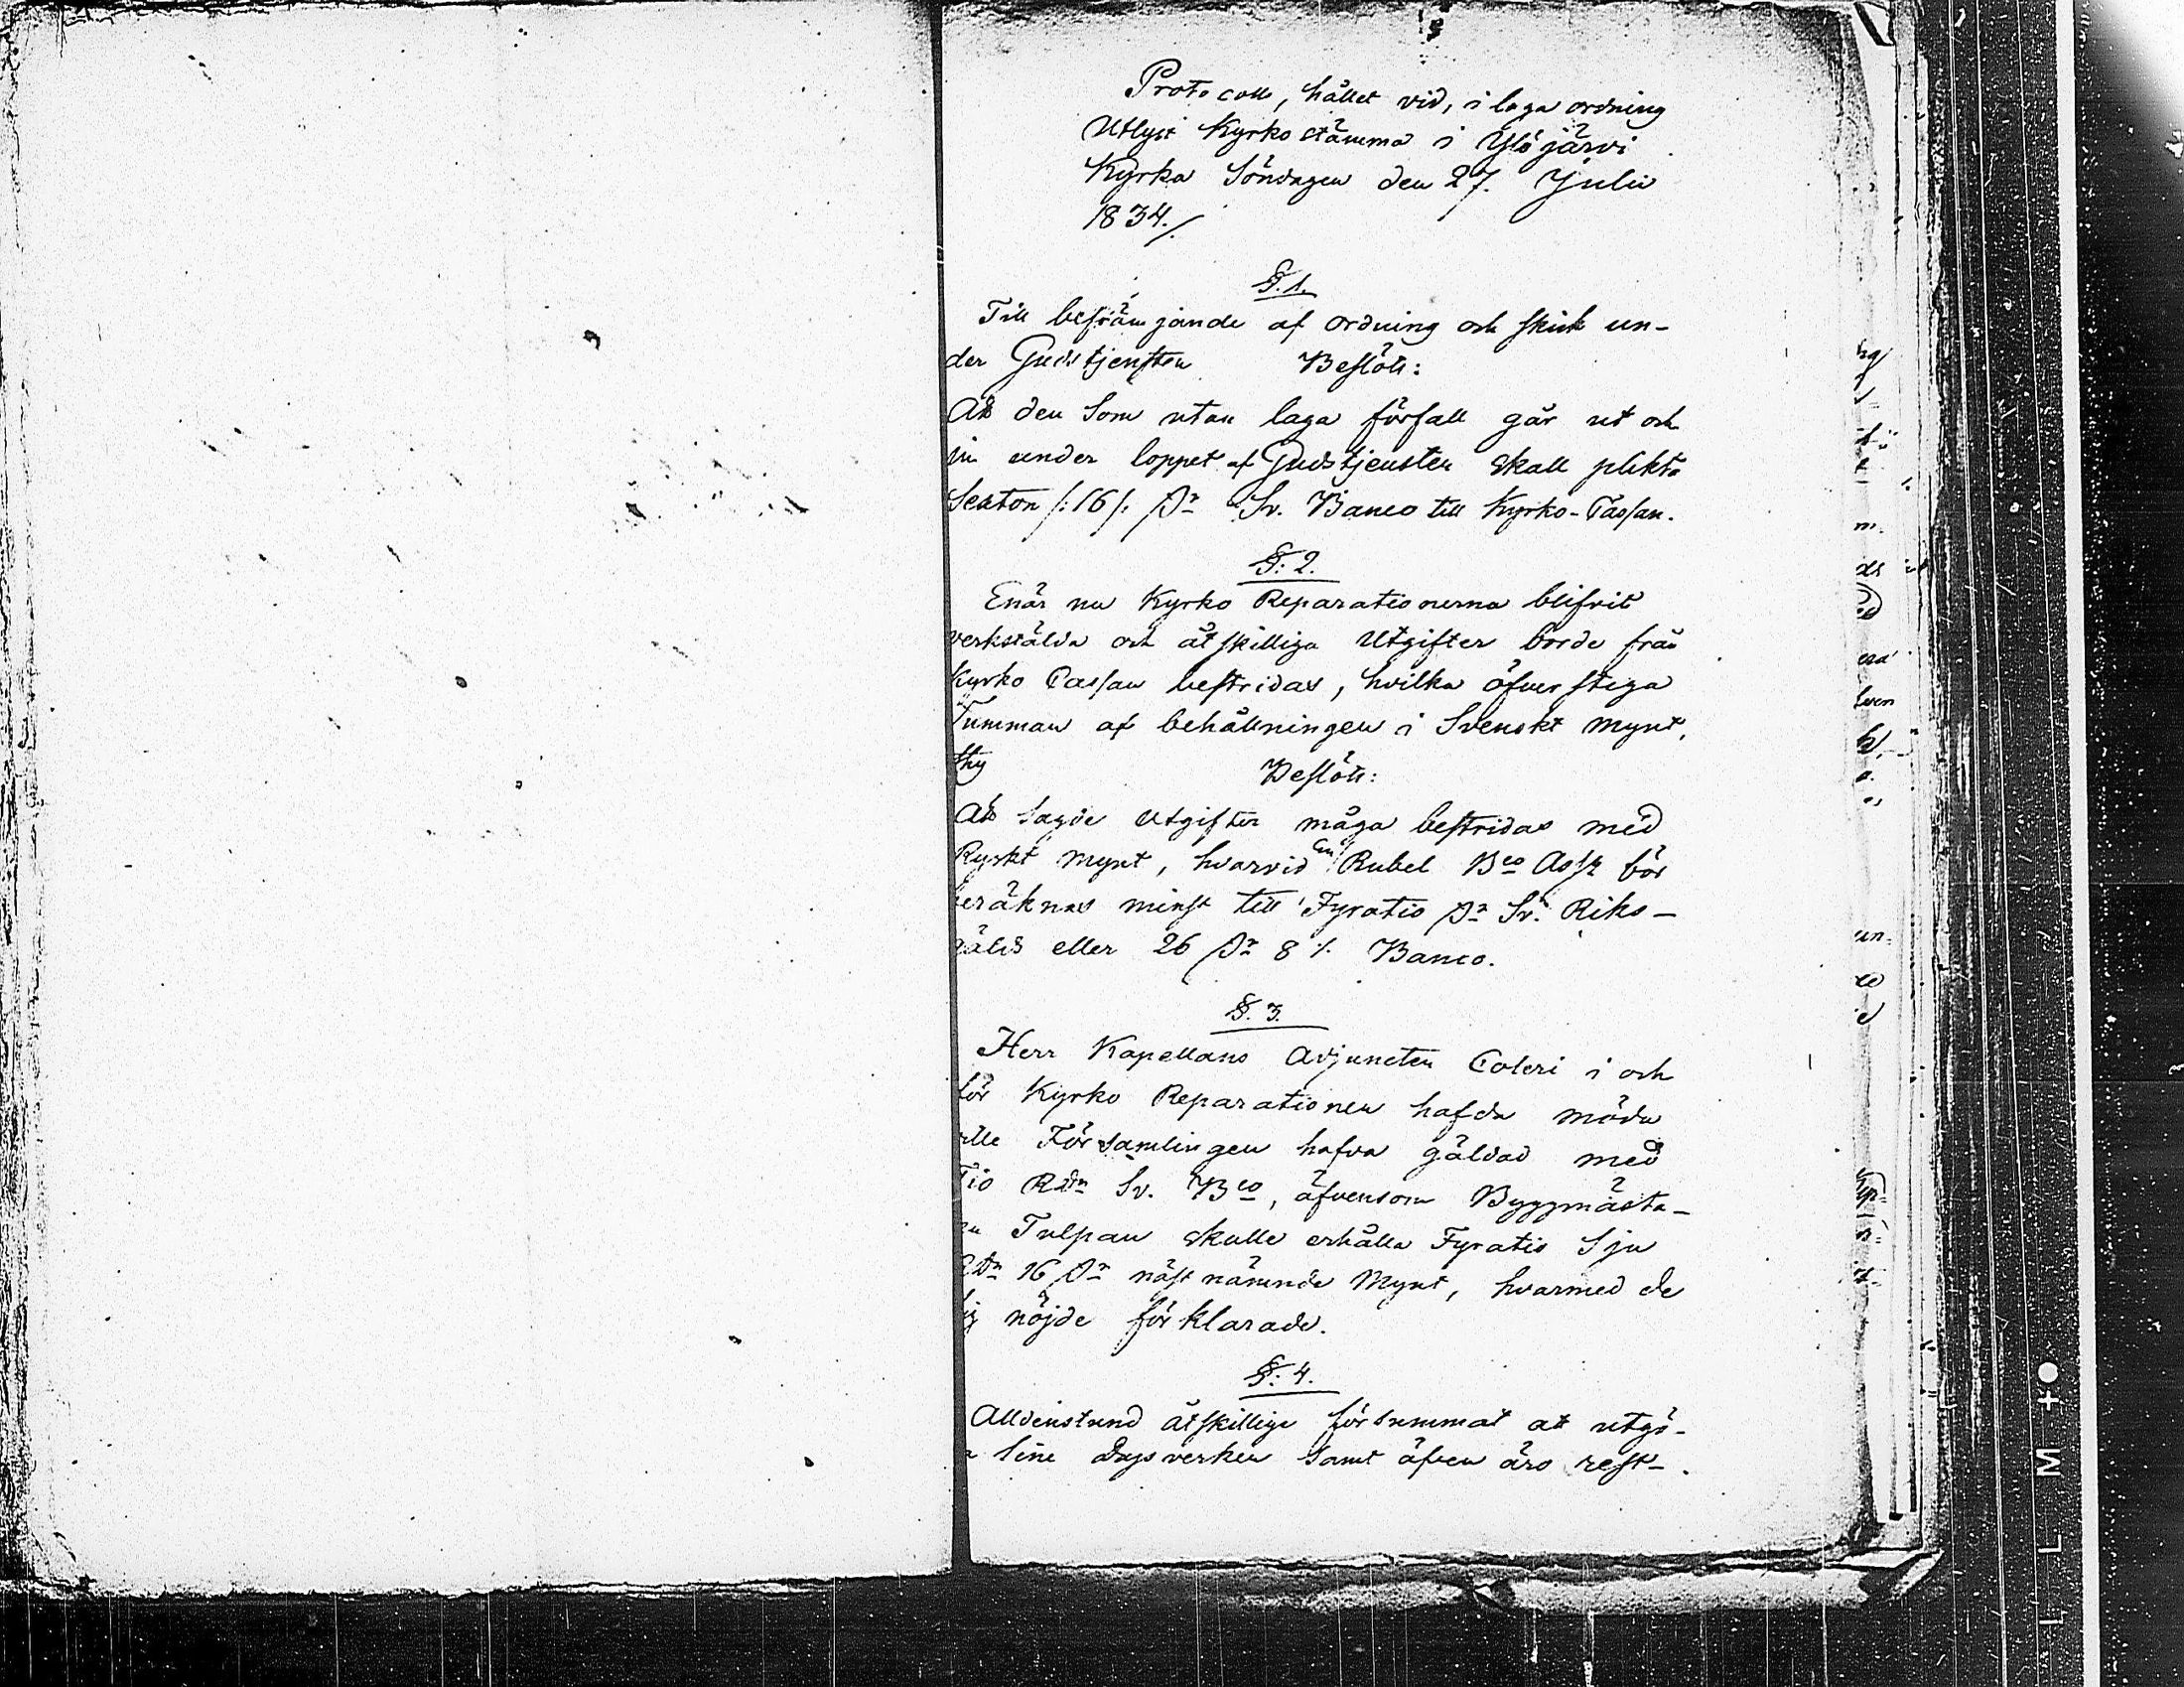 Protocoll, hållet vid, i laga ordning
Utlyst Kyrkostämma i Ylöjärvi
Kyrka Söndagen den 27. Julii
1834./.
§. 1.
Till befrämjande af ordning och skick un-
der Gudstjensten Beslöts:
At den som utan laga förfall går ut och
in under loppet af Gudstjensten skall plikta
Sexton /:16/: Sv. Banco till Kyrko-Cassan.
§: 2.
Enär nu Kyrko Reparationerna blifvit
verkstälda och åtskilliga Utgifter borde från
Kyrko Cassan bestridas, hvilka öfverstiga
Summan af behållningen i Svenskt Mynt,
thy Beslöts:
At sagde Utgifter måga bestridas med
Ryskt Mynt, hvarvid en Rubel Bco Ass. bör
beräknas minst till Fyratio Sv. Riks-
gälds eller 26 8 /. Banco.
§. 3.
Herr Kapellans Adjuncten Coleri i och
för Kyrko Reparationen hafda möda
ville Församlingen hafva gäldad med
Tio Rdr Sv. Bco, äfvensom Byggmästa-
Tulpan skulle erhålla Fyratio Sju
Rdr 16 näst nämnde Mynt, hvarmed de
sig nöjde förklarade.
§: 4.
Alldenstund åtskillige försummat at utgö-
sine dagsverken samt äfven äro rest-